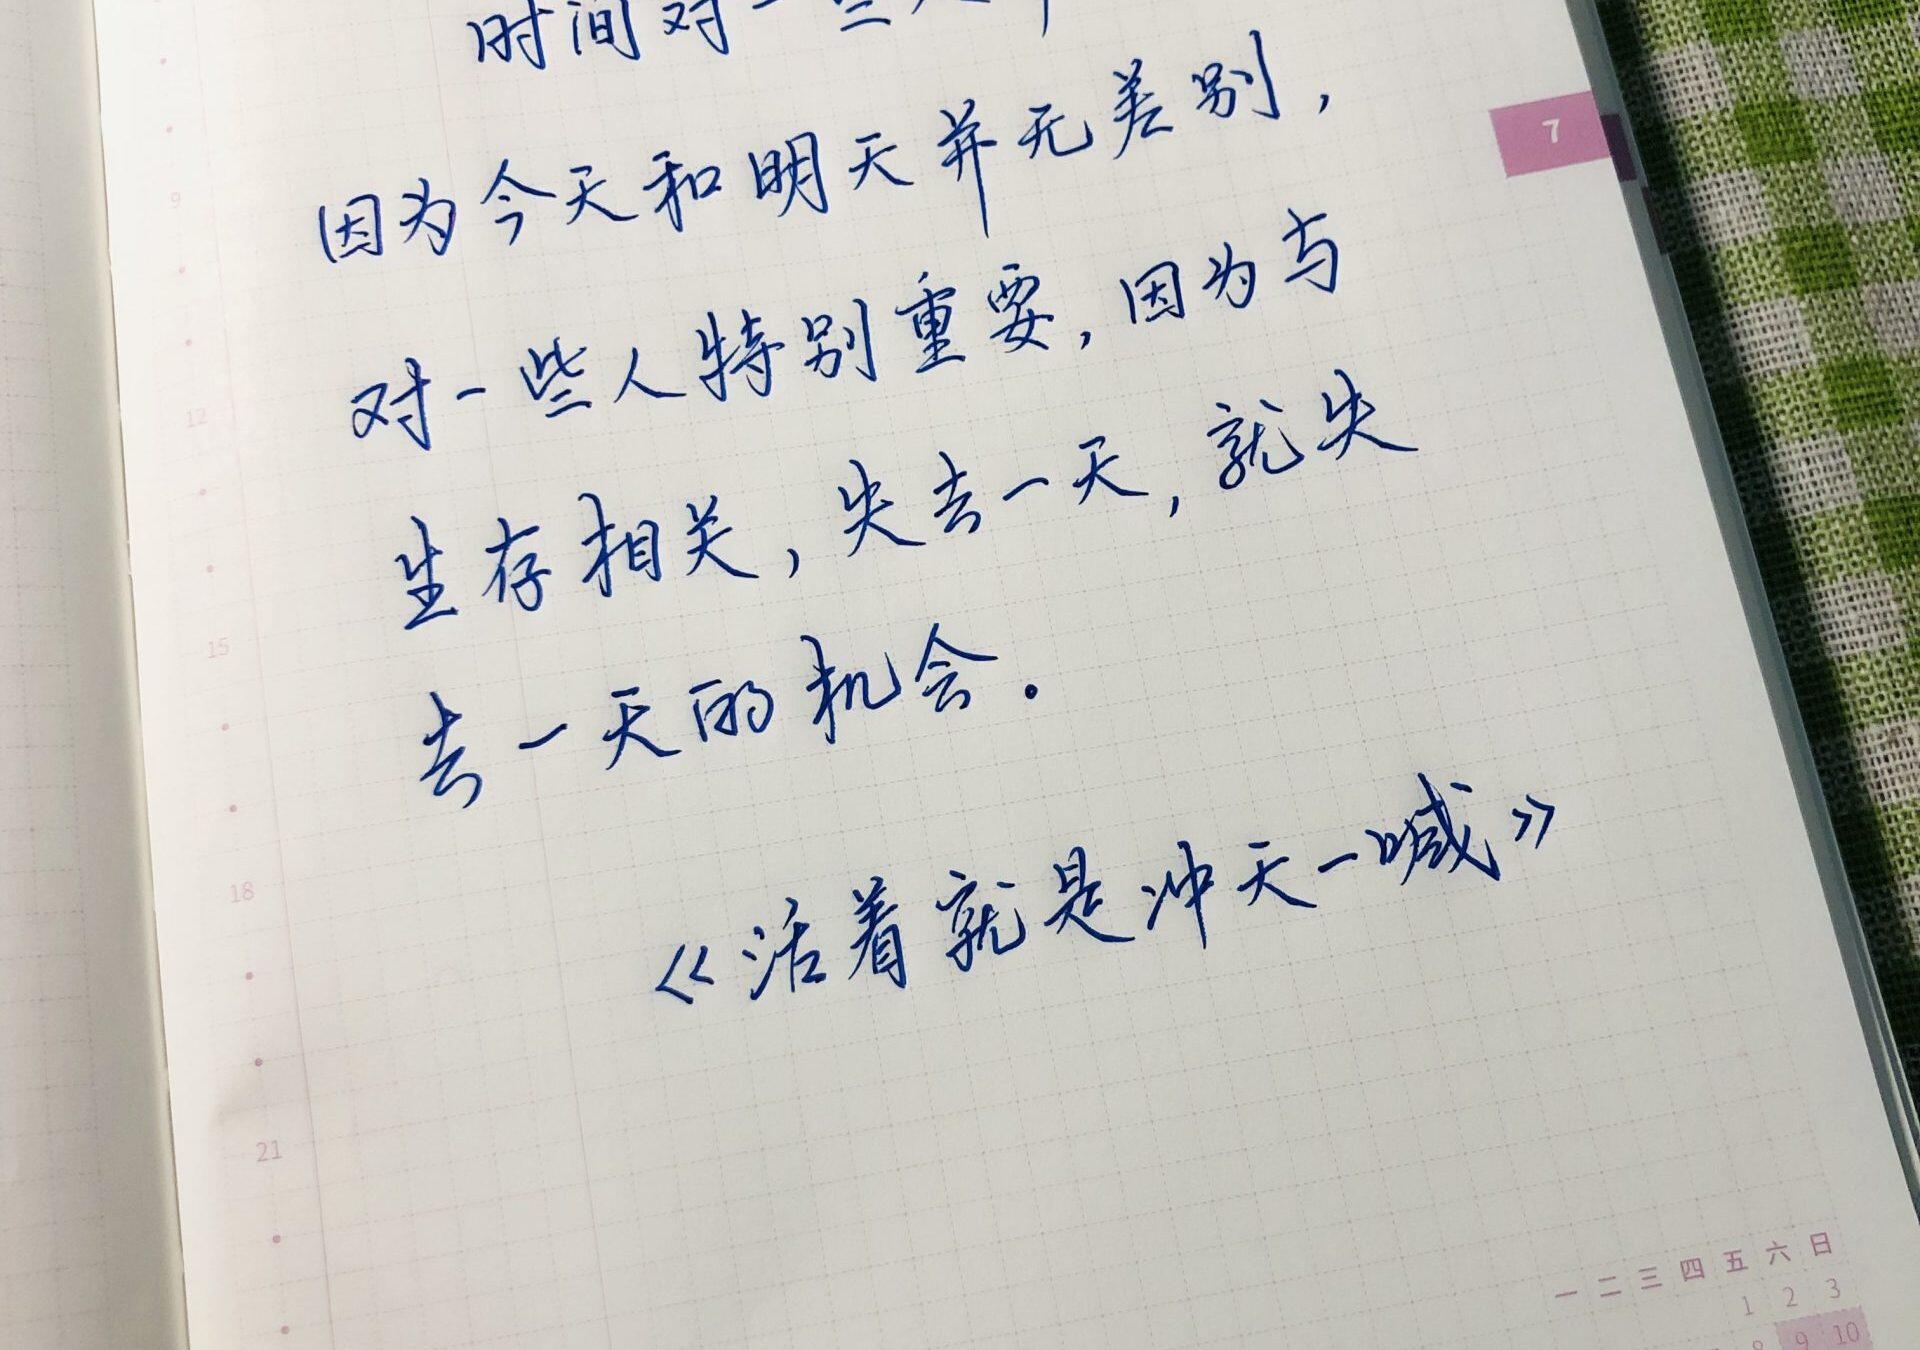 时间对一些人
因为今天和明天并无差别，
对一些人特别重要，因为与
生存相关，失去一天，就失
去一天的机会.
《活着就是冲天一喊》
7
9
12
15
18
21
一 二 三 四 五 六 日
1 2 3
8 9 10